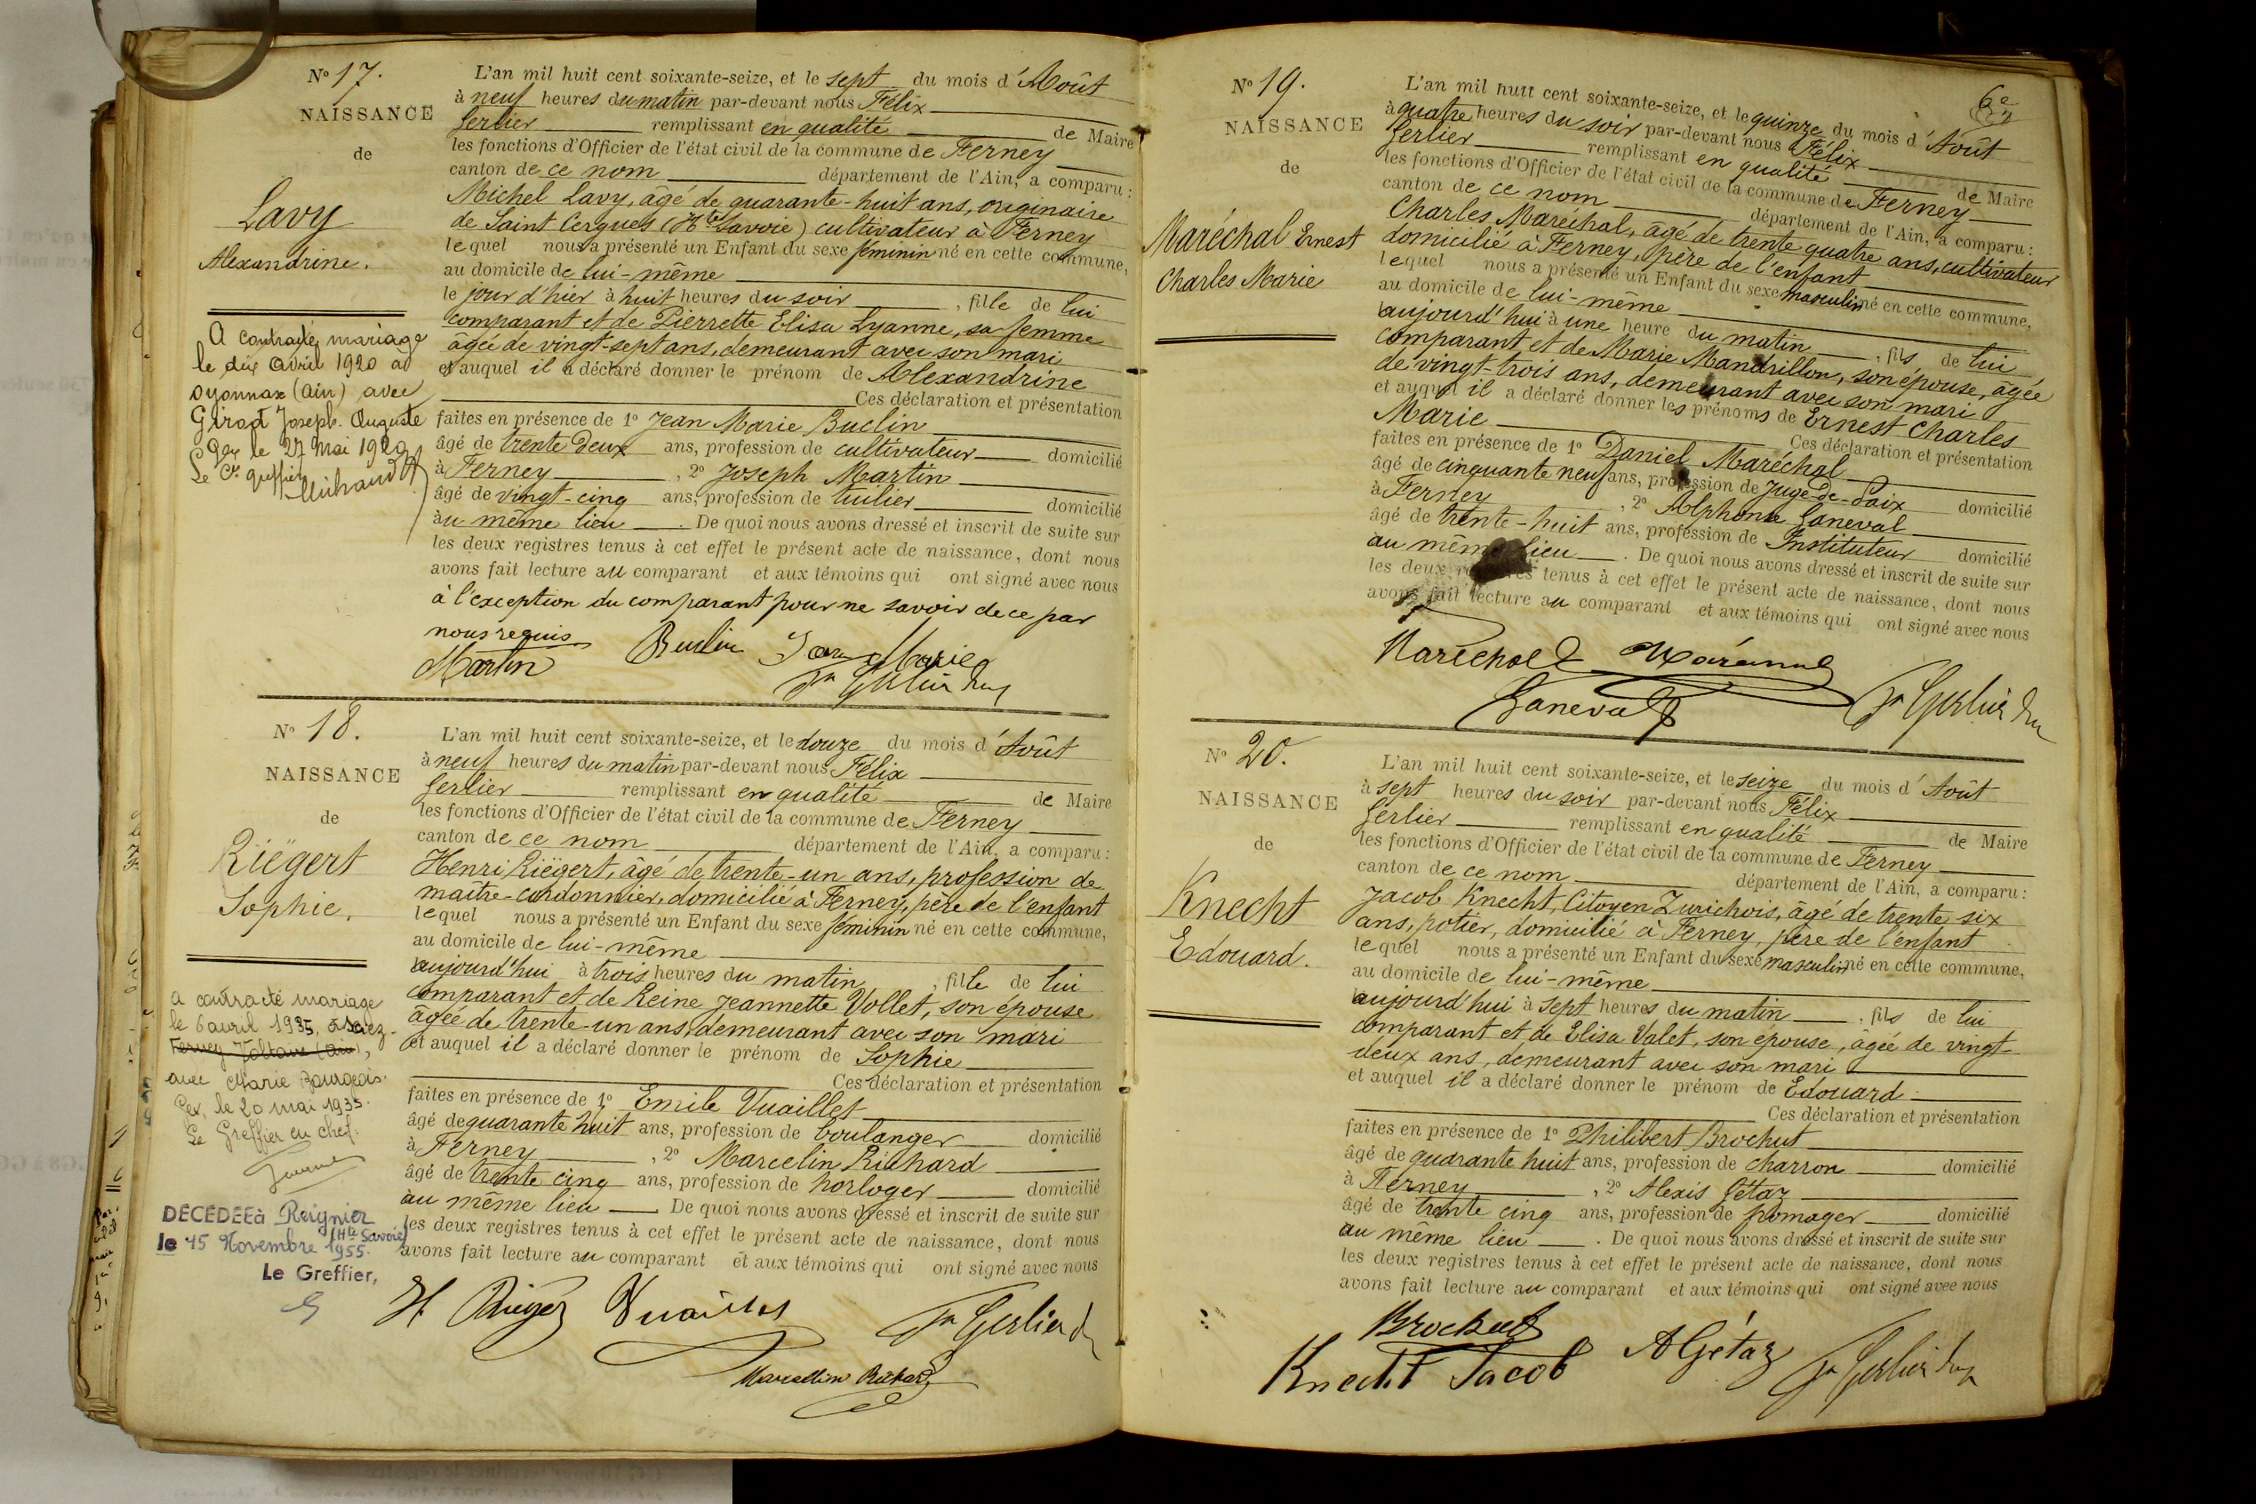 N° 17.
NAISSANCE
de
Lavy
Alexandrine.
A contracté mariage
le dix avril 1920 à
Oyonnax (Ain) avec
Girod Joseph Auguste
Gex le 27 mai 1920
Le Cis Greffier
Michaud
L'an mil huit cent soixante-seize, et le sept du mois d'Août
à neuf heures du matin par-devant nous Félix
Gerlier remplissant en qualité de Maire
les fonctions d'Officier de l'état civil de la commune de Ferney
canton de ce nom département de l'Ain, a comparu :
Michel Lavy, âgé de quarante-huit ans, originaire
de Saint Cergues (Hte Savoie) cultivateur à Ferney
lequel nous a présenté un Enfant du sexe féminin né en cette commune,
au domicile de lui-même
le jour d'hier à huit heures du soir, fille de lui
comparant et de Pierrette Elisa Lyanne, sa femme
âgée de vingt-sept ans, demeurant avec son mari
et auquel il a déclaré donner le prénom de Alexandrine
Ces déclaration et présentation
faites en présence de 1° Jean Marie Buclin
âgé de trente deux ans, profession de cultivateur domicilié
à Ferney, 2° Joseph Martin
âgé de vingt-cinq ans, profession de tuilier domicilié
au même lieu. De quoi nous avons dressé et inscrit de suite sur
les deux registres tenus à cet effet le présent acte de naissance, dont nous
avons fait lecture au comparant et aux témoins qui ont signé avec nous
à l'exception du comparant pour ne savoir de ce par
nous requis
Martin Buclin Jean Marie
Fx Gerlier
N° 18.
NAISSANCE
de
Riëgert
Sophie.
a contracté mariage
le 6 avril 1935, à Sciez
Ferney-Voltaire (Ain),
avec Marie Bourgeois.
Gex, le 20 mai 1935.
Le Greffier en chef.
DÉCÉDÉE à Reignier
(Hte Savoie)
le 15 Novembre 1955.
Le Greffier,
L'an mil huit cent soixante-seize, et le douze du mois d'Août
à neuf heures du matin par-devant nous Félix
Gerlier remplissant en qualité de Maire
les fonctions d'Officier de l'état civil de la commune de Ferney
canton de ce nom département de l'Ain, a comparu :
Henri Riëgert, âgé de trente-un ans, profession de
maître-cordonnier, domicilié à Ferney, père de l'enfant
lequel nous a présenté un Enfant du sexe féminin né en cette commune,
au domicile de lui-même
aujourd'hui à trois heures du matin, fille de lui
comparant et de Reine Jeannette Vollet, son épouse
âgée de trente-un ans, demeurant avec son mari
et auquel il a déclaré donner le prénom de Sophie
Ces déclaration et présentation
faites en présence de 1° Emile Vuaillet
âgé de quarante huit ans, profession de boulanger domicilié
à Ferney, 2° Marcelin Richard
âgé de trente cinq ans, profession de horloger domicilié
au même lieu. De quoi nous avons dressé et inscrit de suite sur
les deux registres tenus à cet effet le présent acte de naissance, dont nous
avons fait lecture au comparant et aux témoins qui ont signé avec nous
H Riëgert Vuaillet Fx Gerlier
Marcellin Richard
6e
N° 19.
NAISSANCE
de
Maréchal Ernest
Charles Marie
L'an mil huit cent soixante-seize, et le quinze du mois d'Août
à quatre heures du soir par-devant nous Félix
Gerlier remplissant en qualité de Maire
les fonctions d'Officier de l'état civil de la commune de Ferney
canton de ce nom département de l'Ain, a comparu :
Charles Maréchal, âgé de trente quatre ans, cultivateur
domicilié à Ferney, père de l'enfant
lequel nous a présenté un Enfant du sexe masculin né en cette commune,
au domicile de lui-même
aujourd'hui à une heure du matin, fils de lui
comparant et de Marie Mandrillon, son épouse, âgée
de vingt-trois ans, demeurant avec son mari
et auquel il a déclaré donner les prénoms de Ernest Charles
Marie Ces déclaration et présentation
faites en présence de 1° Daniel Maréchal
âgé de cinquante neuf ans, profession de Juge-de-Paix domicilié
à Ferney, 2° Alphonse Ganeval
âgé de trente-huit ans, profession de Instituteur domicilié
au même lieu. De quoi nous avons dressé et inscrit de suite sur
les deux registres tenus à cet effet le présent acte de naissance, dont nous
avons fait lecture au comparant et aux témoins qui ont signé avec nous
Maréchal Maréchal
Ganeval Fx Gerlier
N° 20.
NAISSANCE
de
Knecht
Edouard.
L'an mil huit cent soixante-seize, et le seize du mois d'Août
à sept heures du soir par-devant nous Félix
Gerlier remplissant en qualité de Maire
les fonctions d'Officier de l'état civil de la commune de Ferney
canton de ce nom département de l'Ain, a comparu :
Jacob Knecht, Citoyen Zurichois, âgé de trente six
ans, potier, domicilié à Ferney, père de l'enfant
lequel nous a présenté un Enfant du sexe masculin né en cette commune,
au domicile de lui-même
aujourd'hui à sept heures du matin, fils de lui
comparant et de Elisa Valet, son épouse, âgée de vingt-
deux ans, demeurant avec son mari
et auquel il a déclaré donner le prénom de Edouard
Ces déclaration et présentation
faites en présence de 1° Philibert Brochut
âgé de quarante huit ans, profession de charron domicilié
à Ferney, 2° Alexis Gétaz
âgé de trente cinq ans, profession de fromager domicilié
au même lieu. De quoi nous avons dressé et inscrit de suite sur
les deux registres tenus à cet effet le présent acte de naissance, dont nous
avons fait lecture au comparant et aux témoins qui ont signé avec nous
Brochut
Knecht Jacob A Gétaz Fx Gerlier